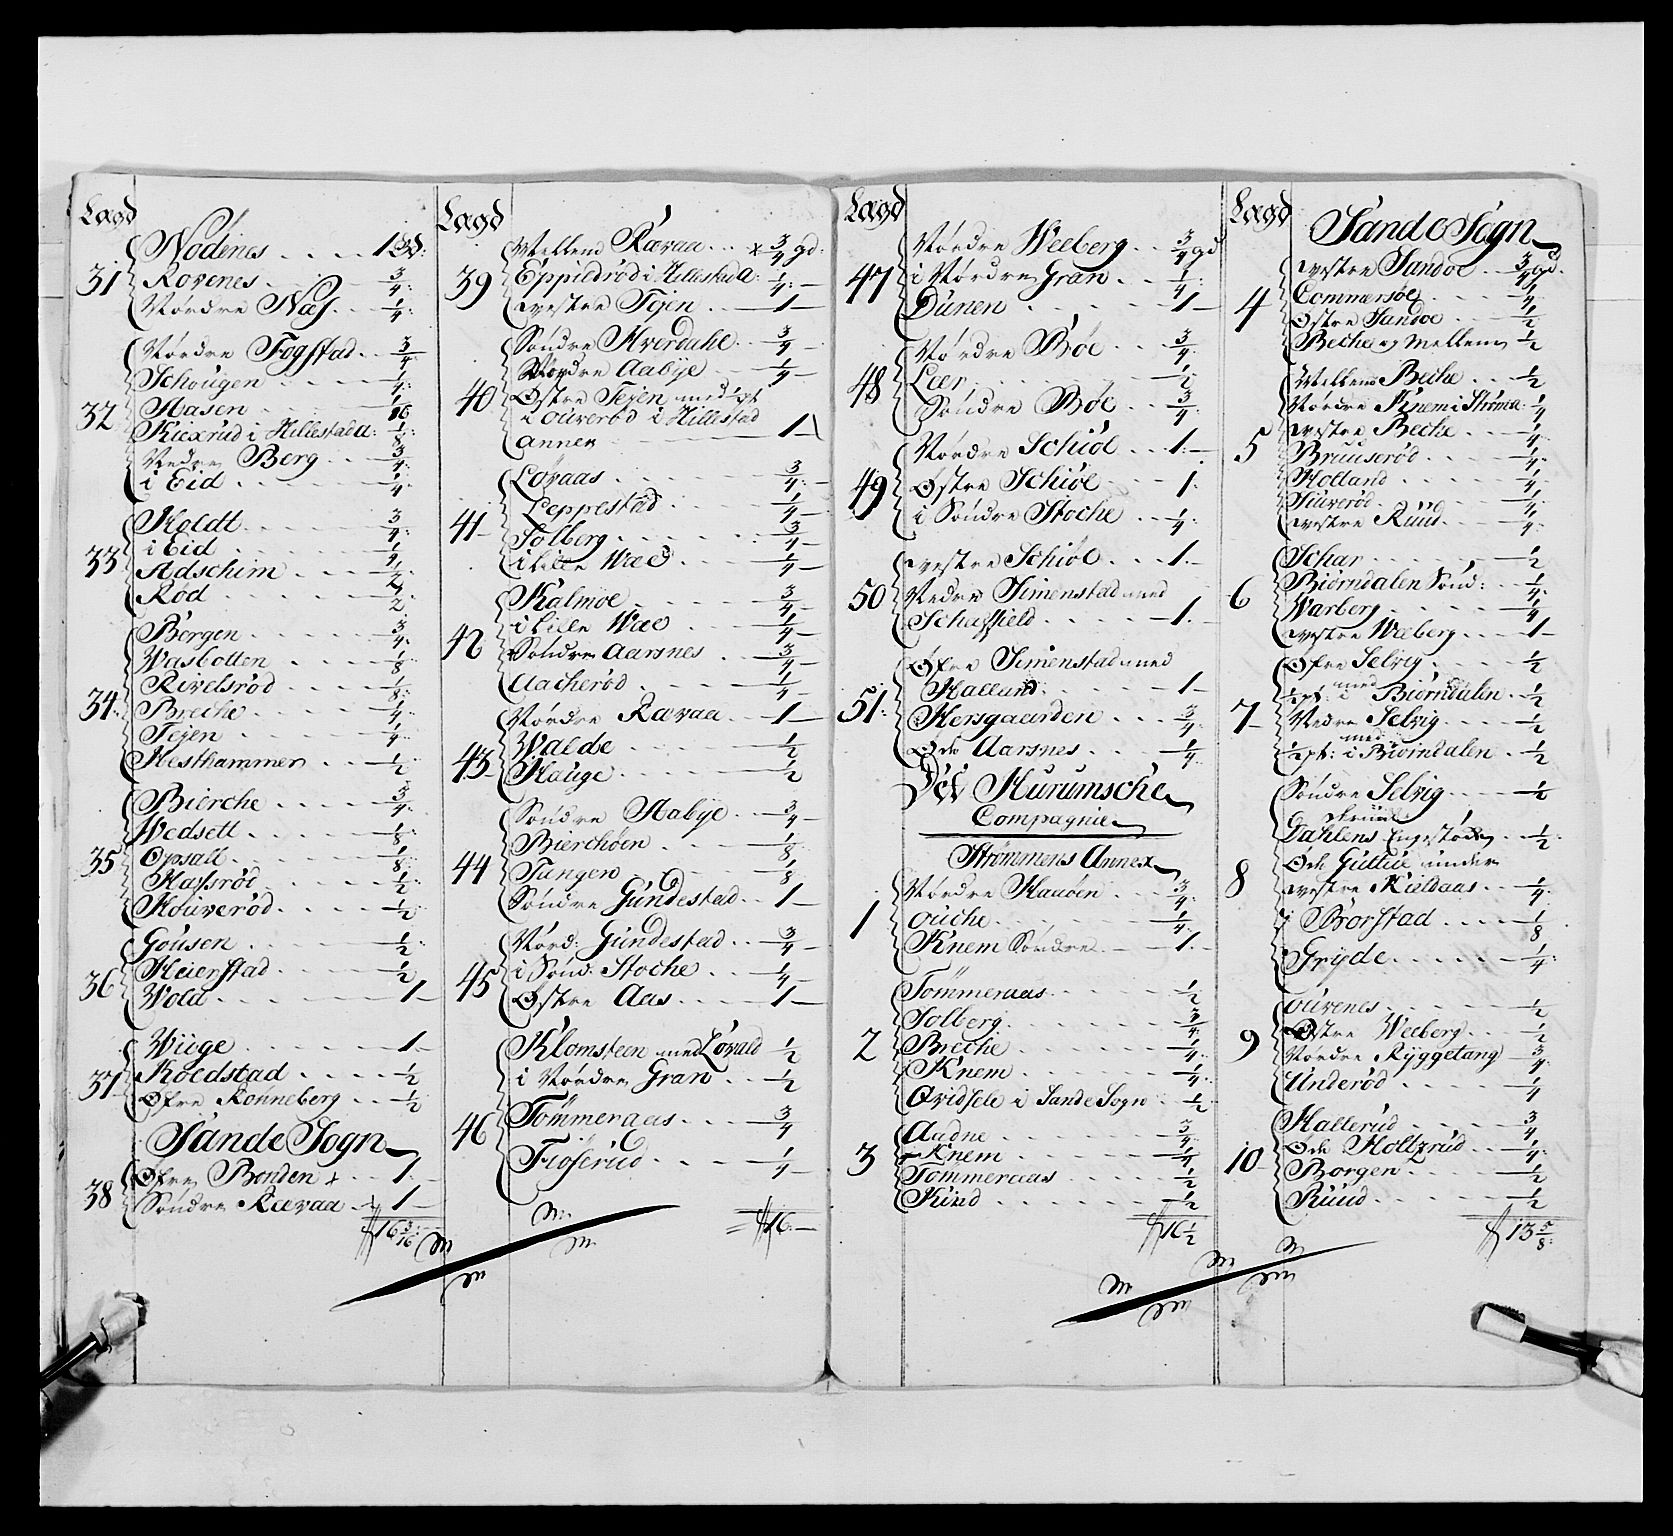 Lagd
Nodenes . . . . 1 gd:
31 Rovenes . . . . 3/4:
Nordre Næs . . . 1/4:
Nordre Fogstad . . 3/4
Schougen . . . . 1/4:
32 Aasen . . . . 1/16
Kiexrud i Hillestad a: 1/8:
Nedre Berg . . . 3/4:
i Eid . . . . 1/4:
Holdt . . . . 3/4:
33 i Eid . . . . 1/4:
Adschim . . . .
Rød . . . .
Bergen . . . . 3/4:
Wasbotten . . . . 1/8
Rivelsrød . . . . 1/8:
34: Breche . . . . 1/4:
Tejen . . . . 1/4
Hesthammer . . . 1/2
Bierche . . . . 3/4:
Wedsett . . . . 1/8
35 Opsall . . . . 1/8:
Hassrød . . . . 1/2
Houverød . . . . 1/2
Gousen . . . . 1/2:
36 Heierstad . . . . 1/2
Wold . . . . 1
Wiige . . . . 1.
37 Roedstad . . . . 1/2
Øfre Rønneberg . . 1/2
Sande Sogn
Øfre Bonden + . . 1.
38 Søndre Rævaa + 1
16 3/16
Lagd
Mellem Rævaa . . . + 3/4 gd:
39 Eppedrød i Hillestad a: 1/4:
westre Tejen . . 1
Søndre Hverdahl . . 3/4
Nordre Aabye . . 1/4
40 Østre Tejen med pl
i ouverød i Hillestad
annex 1
Løvaas . . . . 3/4:
Leppestad . . . . 1/4
41 Solberg . . . . 3/4
i lille Wæd . . . 1/4
Kalmoe . . . . 3/4
i lille Wæd . . . 1/4
42 Søndre Aarsnes . . 3/4
Aacherød . . . . 1/4
Nordre Rævaa . . 1
43 Walde . . . . 1/2
Hauge . . . . 1/2
Søndre Aabye . . 3/4
Bierchøen . . . . 1/8:
44 Tangen . . . . 1/8
Søndre Gundestad . . 1
Nord: Gundestad . . 3/4
45 i Sønd: Stoche . . 1/4
Østre Aas . . . . 1
Klomsteen med Løvald 1/2
i Nordre Gran . . 1/2
46 Tømmeraas . . . 3/4
Fiøserud . . . . 1/4
16.
Lagd
Nordre Weeberg . . 3/4 gd
47 i Nordre Gran . . 1/4:
Dunen . . . . 1
Nordre Bøe . . . 3/4:
48 Leer . . . . 1/2
Søndre Bøe . . . 3/4:
Nordre Schiøl . . . 1.
49 Østre Schiøl . . . 1.
i Søndre Stoche . . 1/4:
westre Schiøl . . . 1.
50 Nedre Simenstad med
Schafsield . . . . 1.
Øfre Simenstad med
Halland . . . . 1
51. Hersgaarden . . . 3/4:
Øde Aarsnes . . . 1/4
Det Hurumsche
Compagnie
Strømmens Annex
Nordre Hauøen . . 3/4:
1 ouche . . . . 1/4:
Knem Søndre . . . 1.
Tømmeraas . . . 1/2
Solberg . . . . 3/4:
2 Breche . . . . 1/4:
Knem . . . . 1/4:
Qvidsele i Sande Sogn . . 1/2
Aadne . . . . 3/4:
3 Knem . . . . 1/4
Tømmeraas . . . 1/2
Kind . . . . 1/2
16 1/2
Lagd
Sande Sogn
westre Sandoe . . 3/4 gd.
4 Commersøe . . . 1/4:
Østre Sandoe . . . 1/2
Beche og Mellem 1/2
Mellem Beche . . . 1/2
Nordre Knem i Strøm a: 1/4
westre Beche . . . 1/4:
5 Bruuserød . . . . 1/4:
Holland . . . . 1/4
1/4
westre Ruud . . . 1/4:
Schar . . . . 1/2
Biørndalen Sønd: . . 1/4:
6 Warberg . . . . 1/4
westre Wæberg . . . 1
Øfre Selvig . . . 1/2
med
1/2 pt: i Biørndalen . 1/2
7 Nedre Selvig . . . 1/2
med
1/2 pt: i Biørndalen . 1/2
Søndre Selvig . . . 1/2
Dahlens Engestøche . . 1/2:
Øde Guttue under
8 westre Kieldaas . . 1/4:
i Borstad . . . . 1/8
Gryde . . . . 1/4:
ouvenes . . . . 1/2
Østre Weeberg . . . 1/2
9 Nordre Ryggetang 3/4:
Underød . . . . 1/4
Hallerud . . . . 3/4
Øde Holtzrud . . . 1/4:
10 Borgen . . . . 1/2
Ruud . . . . 1/2
13 5/8: